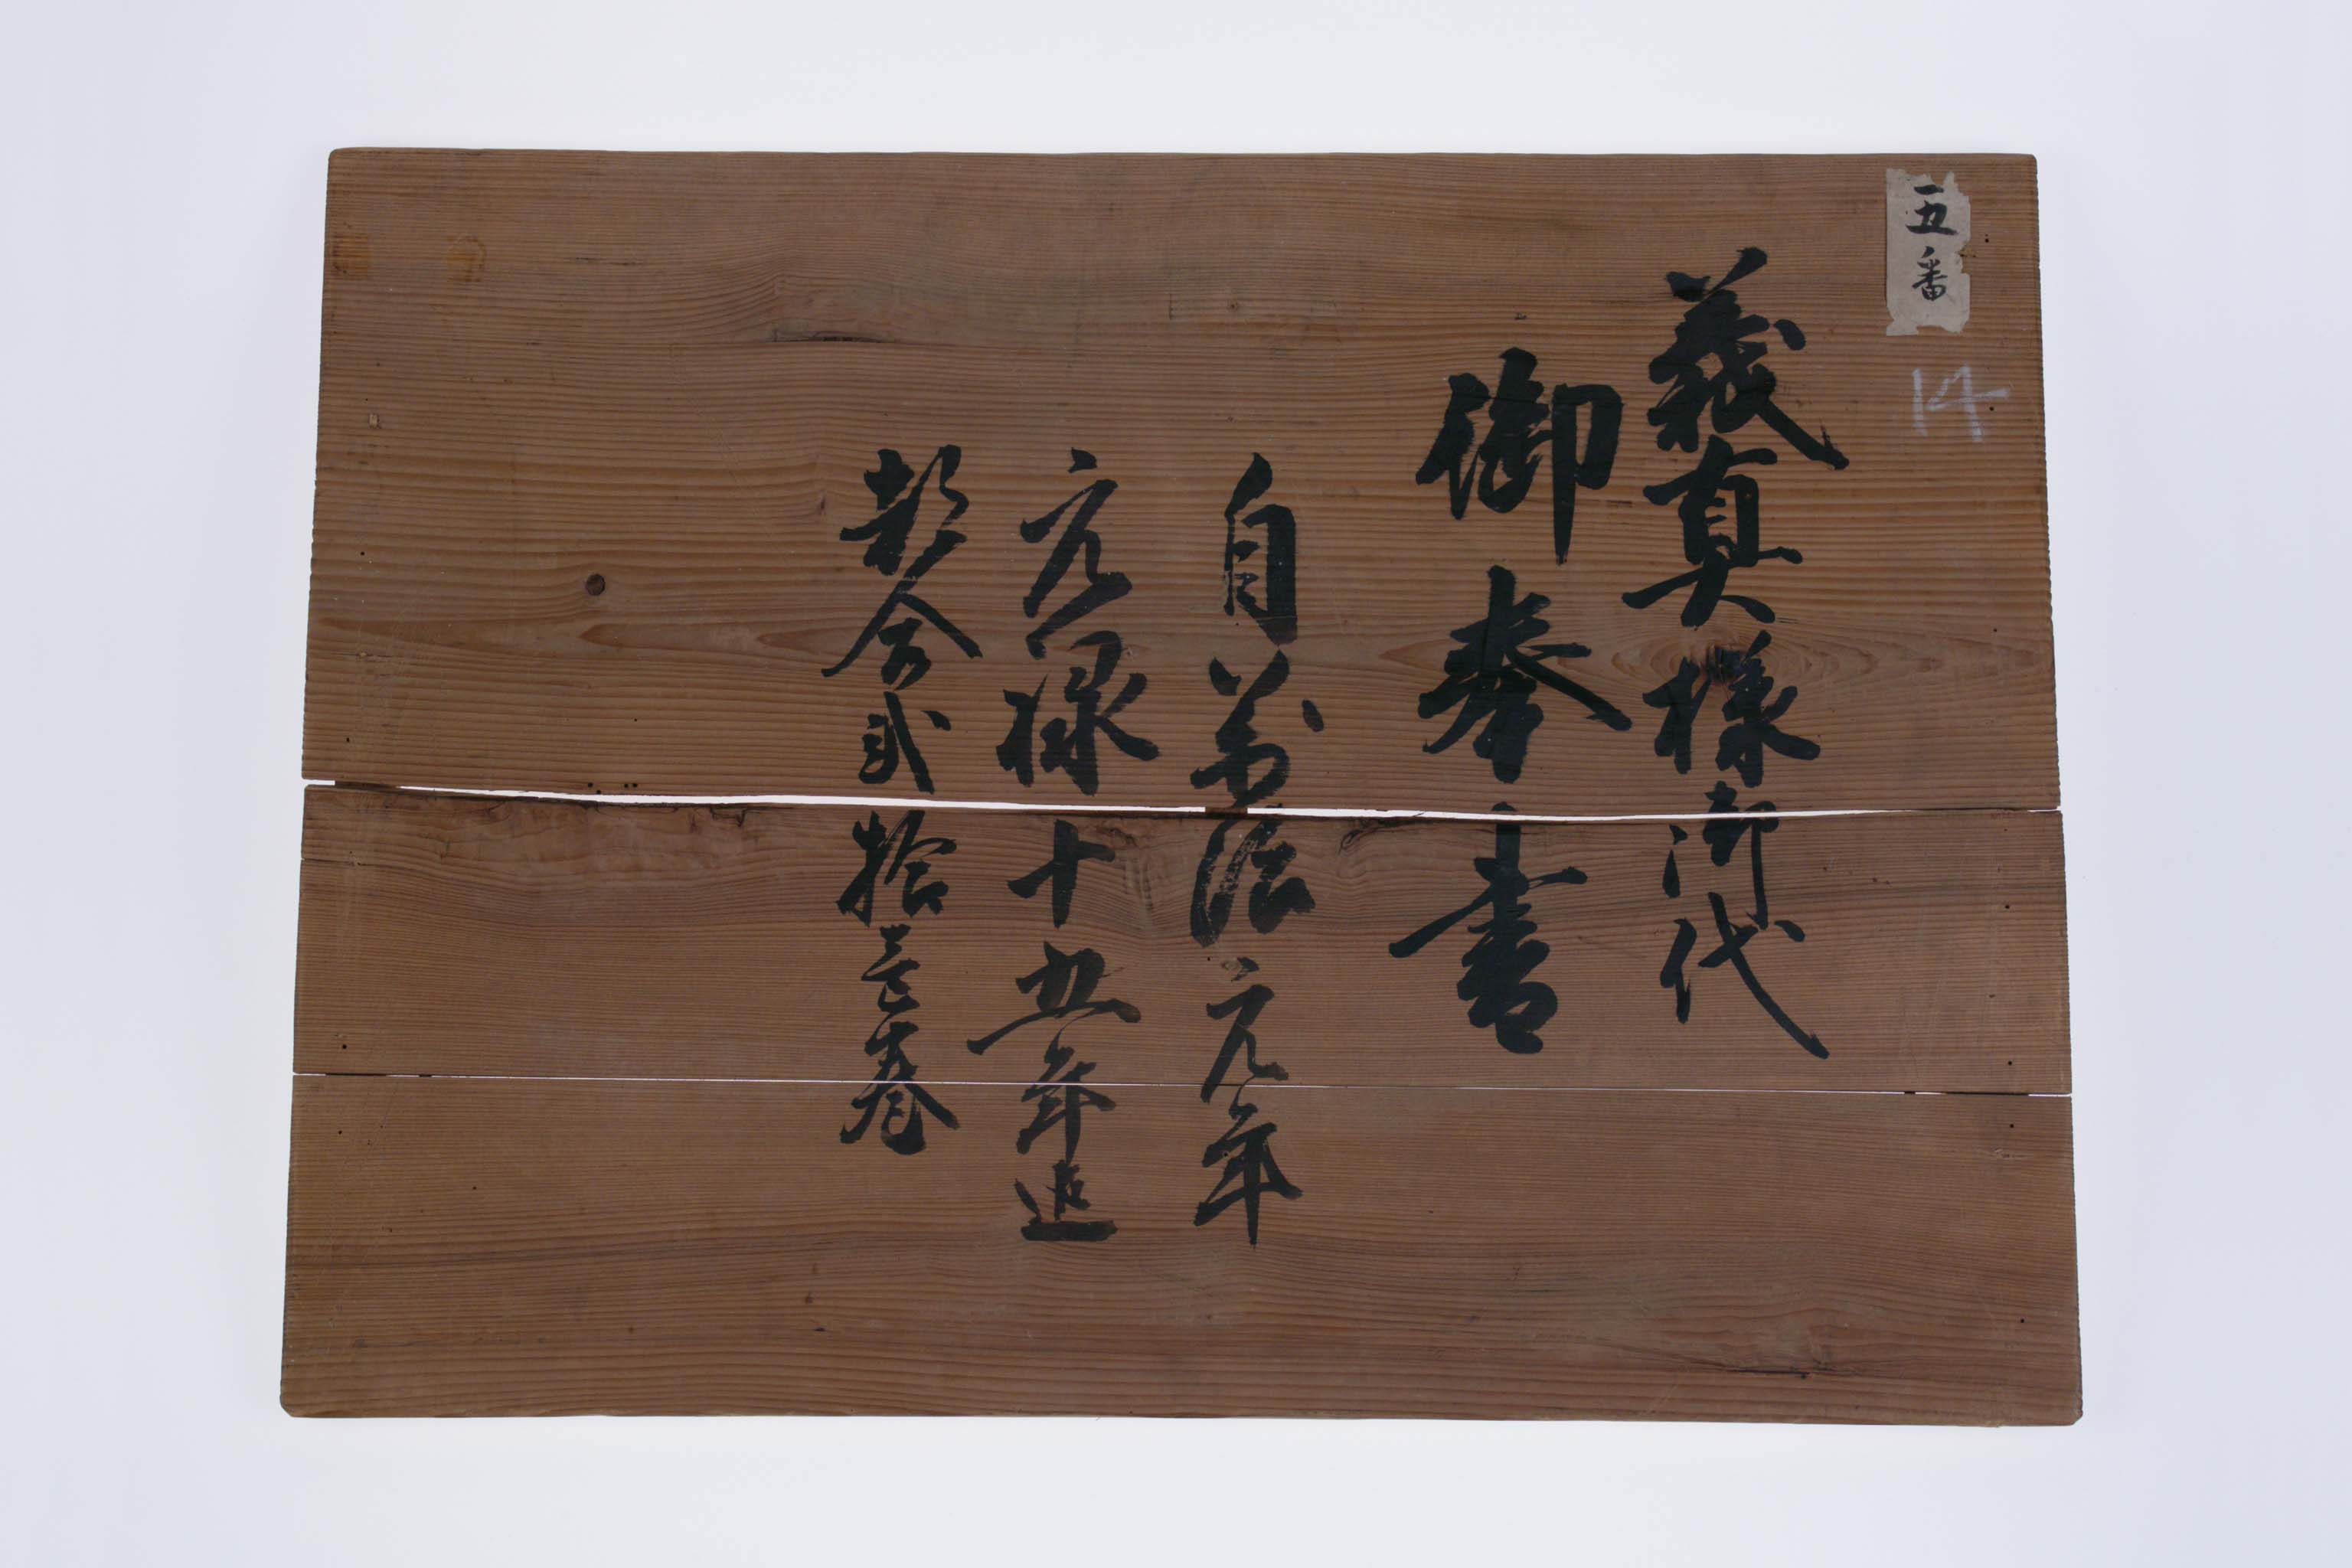 五番
14
義真様御代
御奉書
自萬治元年
元禄十五年迄
都合弐拾壱巻